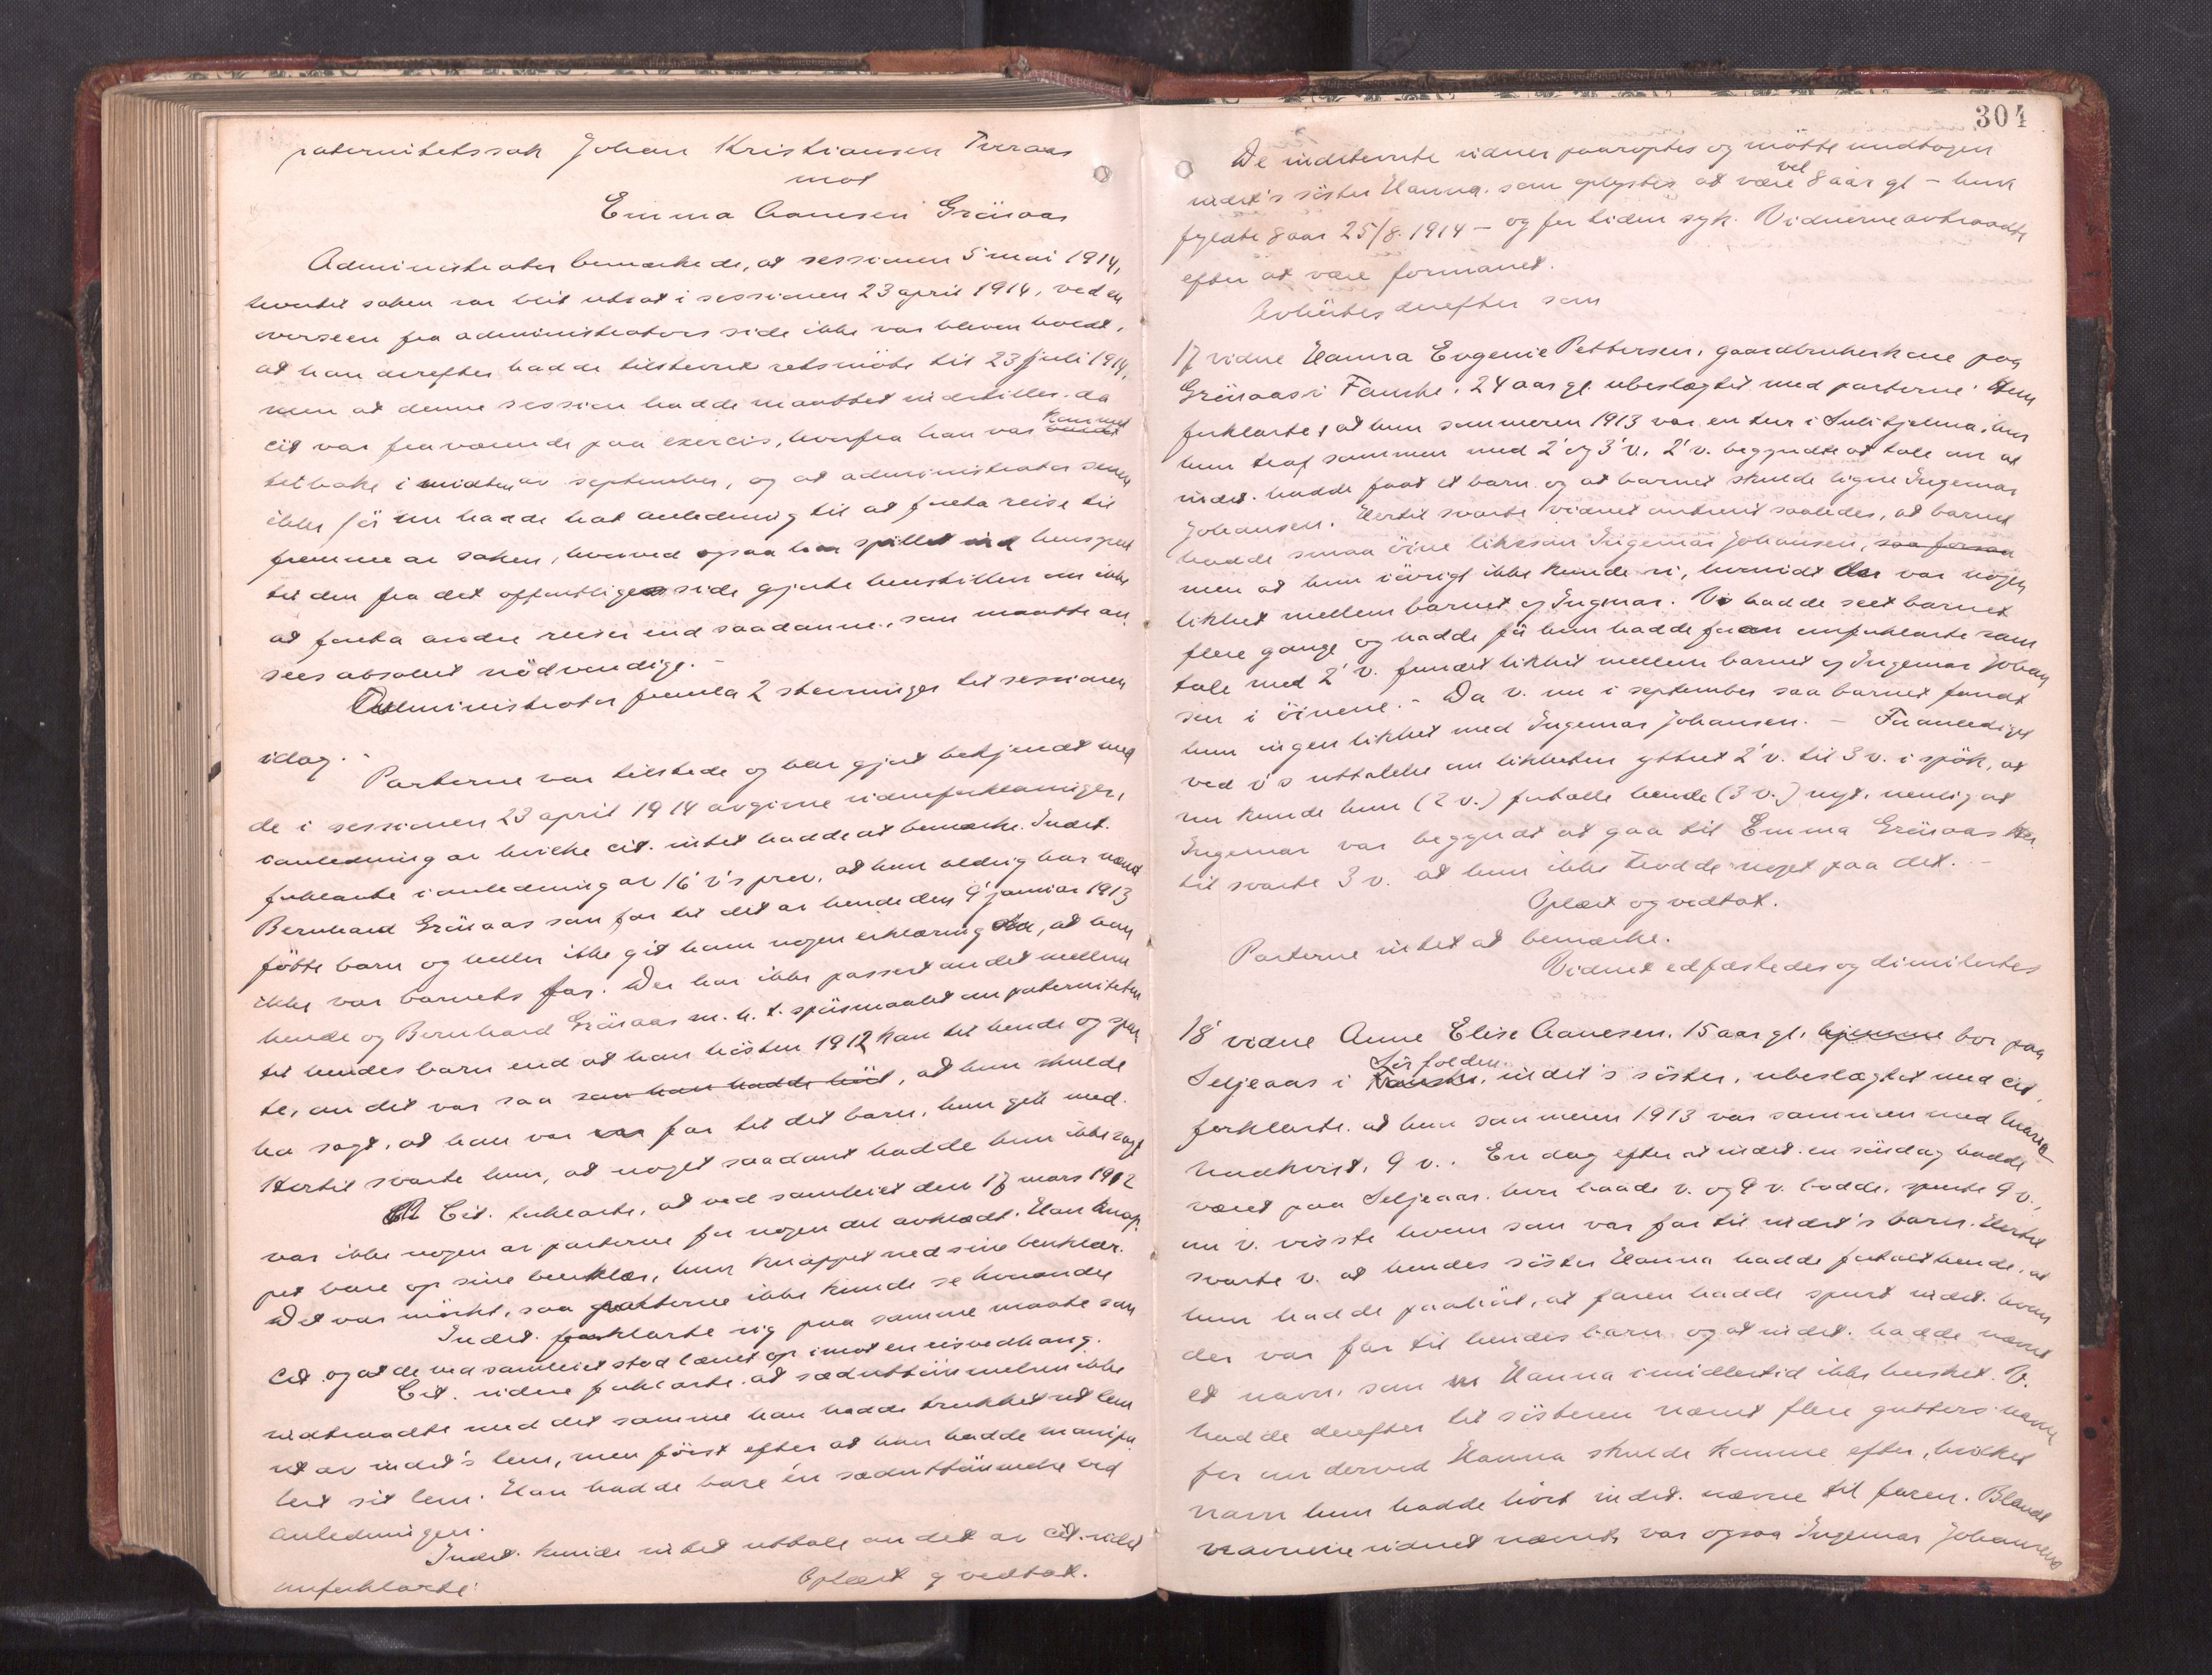 paternitetssak Johan Kristiansen Tveraas
mot
Emma Aanesen Gräsaas
Administrator bemærkede, at sessionen 5 mai 1914,
hvortil saken var blit utsat i sessionen 23 april 1914, ved en
overseen fra administrators side ikke var bleven holdt,
at han derefter hadde tilstevnt retsmöte til 23 juli 1914,
men at denne session hadde maattet indstilles, da
cit var fraværende paa exercis, hvorfra han var kommet
tilbake i midten av september, og at administrator senere
ikke för nu hadde hat anledning til at foreta reise til
fremme av saken, hvorved ogsaa har spillet ind hensynet
til den fra det offentliges side gjorte henstillen om ikke
at foreta andre reiser end saadanne, som maatte an
sees absolut nödvendige. –
Administrator fremla 2 stevninger til sessionen
idag. –
Parterne var tilstede og blev gjort bekjendt med
de i sessionen 23 april 1914 avgivne vidneforklaringer,
i anledning av hvilke cit. intet hadde at bemærke. Indst.
forklarte i anledning av 16' v's prov, at hun aldrig har nævnt
Bernhard Gräsaas som far til det av hende den 9' januar 1913
fötte barn og heller ikke git ham nogen erklæring, at han
ikke var barnets far. Der har ikke passert andet mellem
hende og Bernhard Gräsaas m. h. t. spörsmaalet om paterniteten
til hendes barn end at han hösten 1912 kom til hende og spur
te, om det var saa som han hadde hört, at hun skulde
ha sagt, at han var far til det barn, hun gik med.
Hertil svarte hun, at noget saadant hadde hun ikke sagt
Cit. forklarte, at ved samleiet den 17 mars 1912
var ikke nogen av parterne for nogen del avklædt. Han knap
pet bare op sine benklær, hun knappet ned sine benklær.
Det var mörkt, saa parterne ikke kunde se hverandre
Indst. forklarte sig paa samme maate som
Cit. og at de ved samleiet stod lænet op imot en risvedhaug.
Cit. videre forklarte, at sæduttömmelsen ikke
indtraadte med det samme han hadde trukket sit lem
ut av indst's lem, men först efter at han hadde manipu
lert sit lem. Han hadde bare én sæduttömmelse ved
anledningen.
Indst. kunde intet uttale om det av cit. sidst
anforklarte.
Oplæst og vedtat.
304
De indstevnte vidner paaroptes og mötte undtagen
indst's söster Hanna, som oplystes at være vel 8 aar gl – hun
fyldte 8 aar 25/8. 1914 – og for tiden syk. Vidnerne avtraadte
efter at være formanet.
Avhörtes derefter som
17 vidne Hanna Eugenie Pettersen, gaardbrukerkone paa
Gräsaas i Fauske, 24 aar gl. ubeslægtet med parterne. Hun
forklarte, at hun sommeren 1913 var en tur i Sulitjelma, hvor
hun traf sammen med 2' og 3' v. 2' v. begyndte at tale om at
indst. hadde faat et barn og at barnet skulde ligne Ingemar
Johansen. Hertil svarte vidnet omtrent saaledes, at barnet
hadde smaa öine likesom Ingemar Johansen, saa forsaa
men at hun iövrigt ikke kunde si, hvorvidt der var nogen
likhet mellem barnet og Ingmar. V. hadde seet barnet
flere gange og hadde för hun hadde foran omforklarte sam
tale med 2' v. fundet likhet mellem barnet og Ingemar Johan
sen i öinene. – Da v. nu i september saa barnet fandt
hun ingen likhet med Ingemar Johansen. – Foranlediget
ved v's uttalelse om likheten yttret 2' v. til 3 v. i spök, at
nu kunde hun (2 v.) fortælle hende (3 v.) nyt, nemlig at
Ingemar var begyndt at gaa til Emma Gräsaas. Her
til svarte 3 v. at hun ikke trodde noget paa det. –
Oplæst og vedtat.
Parterne intet at bemærke.
Vidnet edfæstedes og dimitertes
18' vidne Anne Elise Aanesen, 15 aar gl, hjemme bor paa
Seljeaas i Fauske Sörfolden, indst's söster, ubeslægtet med cit,
forklarte, at hun sommeren 1913 var sammen med Maria
Lundkvist, 9 v. En dag efter at indst. en söndag hadde
været paa Seljeaas, hvor baade v. og 9 v. bodde, spurte 9 v.,
om v. visste hvem som var far til indst's barn. Hertil
svarte v. at hendes söster Hanna hadde fortalt hende, at
hun hadde paahört, at faren hadde spurt indst. hvem
der var far til hendes barn og at indst. hadde nævnt
et navn, som Hanna imidlertid ikke husket. V.
hadde derefter til sösteren nævnt flere gutters navne
for om derved Hanna skulde komme efter, hvilket
navn hun hadde hört indst. nævne til faren. Blandt
navnene vidnet nævnte, var ogsaa Ingemar Johansens